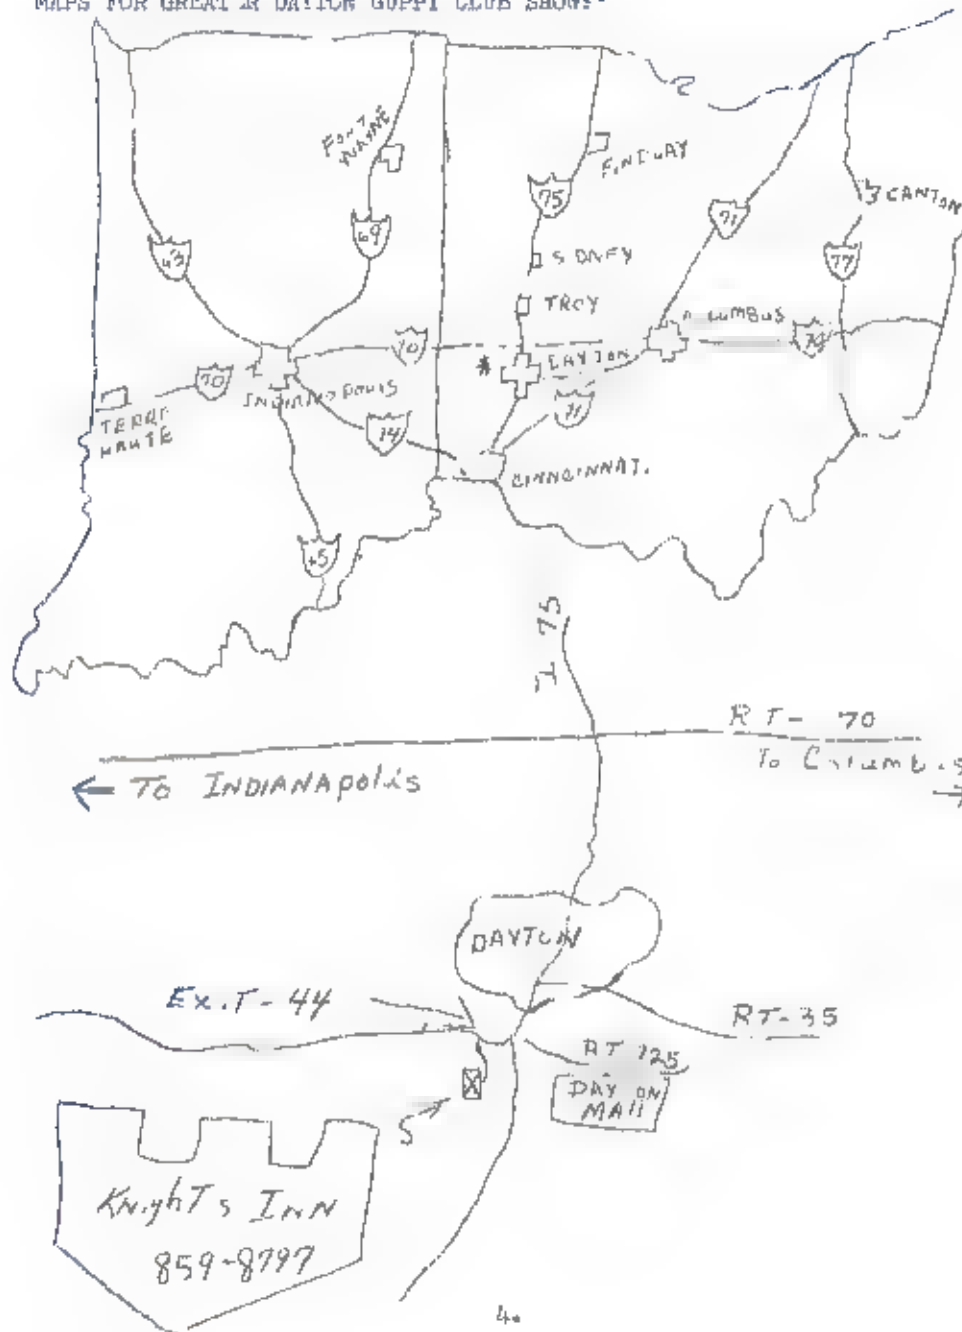 MAPS FOR GREAT R DAYTON GUPPY CLUB SHOW:
FORT
WAYNE
FINDLAY
75
71
CANTON
69
63
SIDNEY
77
TROY
COLUMBUS
70
70
DAYTON
*
70
INDIANAPOLIS
71
TERRE
HAUTE
74
CINNCINNATI
65
I 75
RT- 70
To Columbus
← To INDIANApolis
→
DAYTON
Exit- 44
RT-35
RT 725
DAYTON
MAll
X
S
KnighTs Inn
859-8797
4.